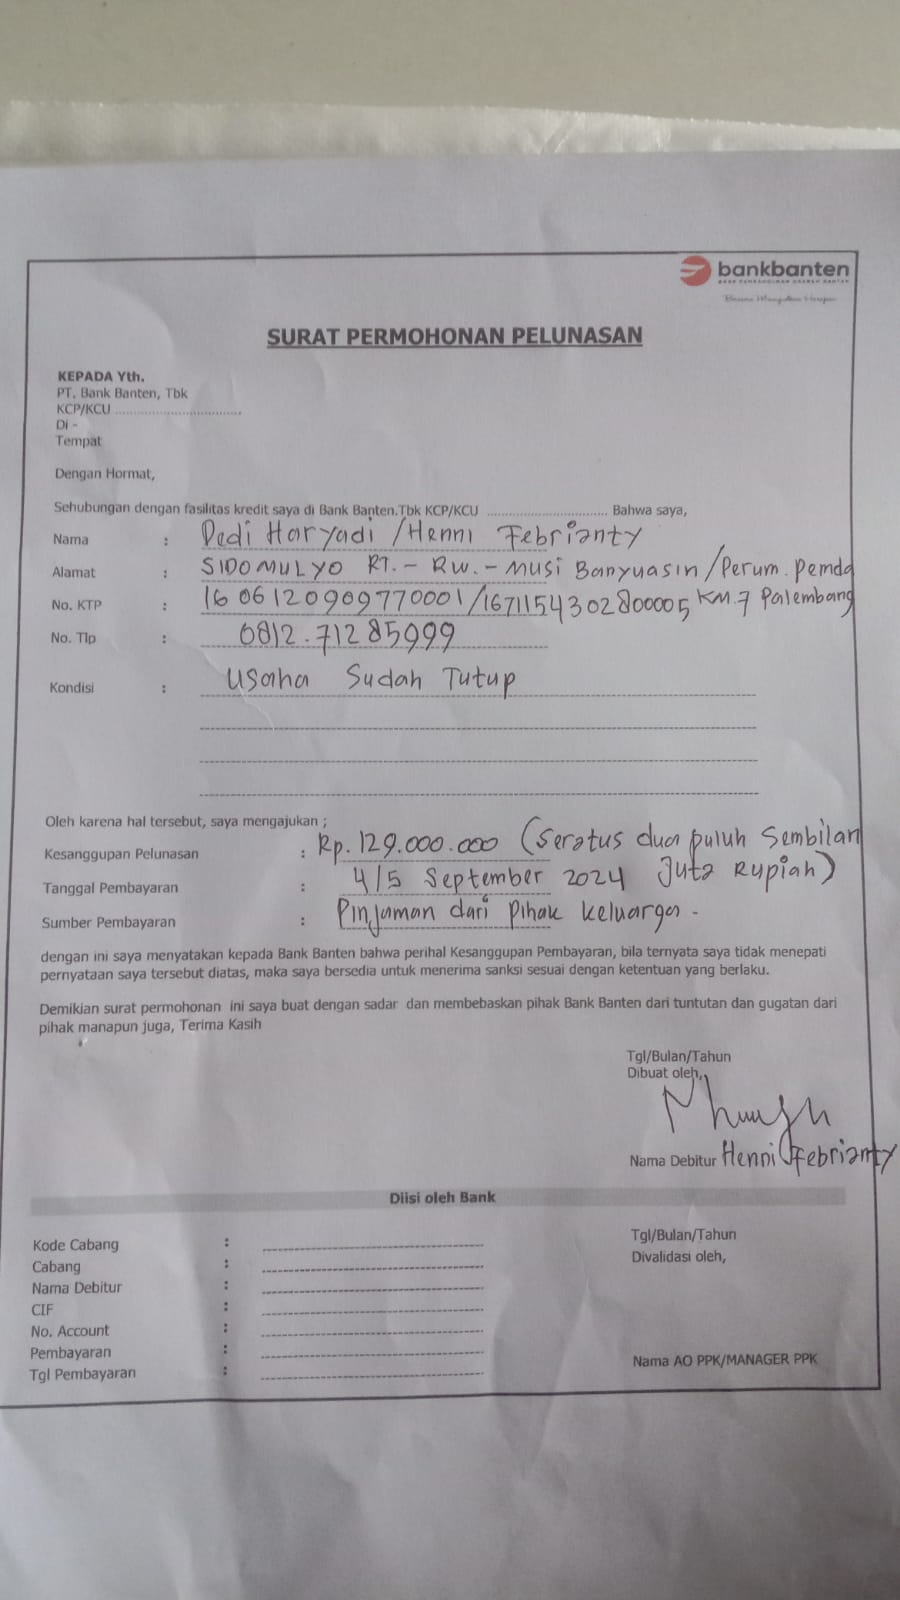 bankbanten
BANK PEMBANGUNAN DAERAH BANTEN
SURAT PERMOHONAN PELUNASAN
KEPADA Yth.
PT. Bank Banten, Tbk
KCP/KCU ................................
Di -
Tempat
Dengan Hormat,
Sehubungan dengan fasilitas kredit saya di Bank Banten.Tbk KCP/KCU ................................ Bahwa saya,
Nama : Dedi Haryadi /Henni Febrianty
Alamat : SIDOMULYO RT.- RW.- Musi Banyuasin/Perum. Pemda
No. KTP : 1606120909770001/1671154302800005 KM.7 Palembang
No. Tlp : 0812.71285999
Kondisi : Usaha Sudah Tutup
Oleh karena hal tersebut, saya mengajukan ;
Kesanggupan Pelunasan : Rp. 129.000.000 (Seratus dua puluh Sembilan
Tanggal Pembayaran : 4/5 September 2024 Juta Rupiah)
Sumber Pembayaran : Pinjaman dari Pihak Keluarga -
dengan ini saya menyatakan kepada Bank Banten bahwa perihal Kesanggupan Pembayaran, bila ternyata saya tidak menepati
pernyataan saya tersebut diatas, maka saya bersedia untuk menerima sanksi sesuai dengan ketentuan yang berlaku.
Demikian surat permohonan ini saya buat dengan sadar dan membebaskan pihak Bank Banten dari tuntutan dan gugatan dari
pihak manapun juga, Terima Kasih
Tgl/Bulan/Tahun
Dibuat oleh,
Nama Debitur Henni Febrianty
Diisi oleh Bank
Kode Cabang :
Tgl/Bulan/Tahun
Cabang :
Divalidasi oleh,
Nama Debitur :
CIF :
No. Account :
Pembayaran :
Nama AO PPK/MANAGER PPK
Tgl Pembayaran :